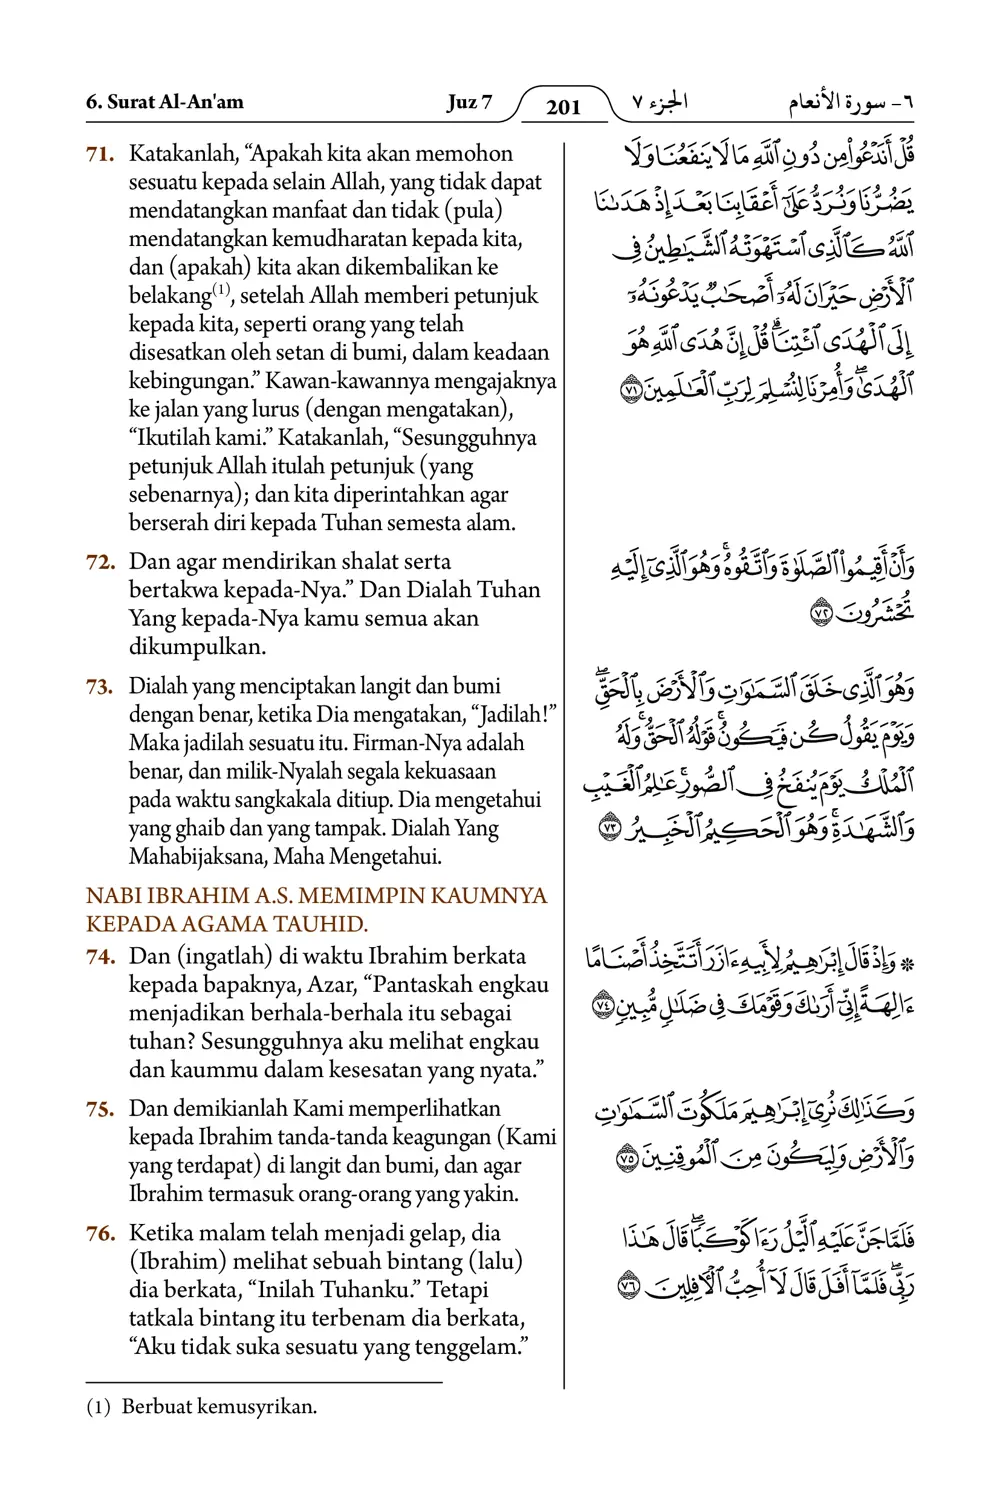 6. Surat Al-An'am Juz 7 201 الجزء ٧ ٦- سورة الأنعام
71. Katakanlah, “Apakah kita akan memohon
sesuatu kepada selain Allah, yang tidak dapat
mendatangkan manfaat dan tidak (pula)
mendatangkan kemudharatan kepada kita,
dan (apakah) kita akan dikembalikan ke
belakang(1), setelah Allah memberi petunjuk
kepada kita, seperti orang yang telah
disesatkan oleh setan di bumi, dalam keadaan
kebingungan.” Kawan-kawannya mengajaknya
ke jalan yang lurus (dengan mengatakan),
“Ikutilah kami.” Katakanlah, “Sesungguhnya
petunjuk Allah itulah petunjuk (yang
sebenarnya); dan kita diperintahkan agar
berserah diri kepada Tuhan semesta alam.
72. Dan agar mendirikan shalat serta
bertakwa kepada-Nya.” Dan Dialah Tuhan
Yang kepada-Nya kamu semua akan
dikumpulkan.
73. Dialah yang menciptakan langit dan bumi
dengan benar, ketika Dia mengatakan, “Jadilah!”
Maka jadilah sesuatu itu. Firman-Nya adalah
benar, dan milik-Nyalah segala kekuasaan
pada waktu sangkakala ditiup. Dia mengetahui
yang ghaib dan yang tampak. Dialah Yang
Mahabijaksana, Maha Mengetahui.
NABI IBRAHIM A.S. MEMIMPIN KAUMNYA
KEPADA AGAMA TAUHID.
74. Dan (ingatlah) di waktu Ibrahim berkata
kepada bapaknya, Azar, “Pantaskah engkau
menjadikan berhala-berhala itu sebagai
tuhan? Sesungguhnya aku melihat engkau
dan kaummu dalam kesesatan yang nyata.”
75. Dan demikianlah Kami memperlihatkan
kepada Ibrahim tanda-tanda keagungan (Kami
yang terdapat) di langit dan bumi, dan agar
Ibrahim termasuk orang-orang yang yakin.
76. Ketika malam telah menjadi gelap, dia
(Ibrahim) melihat sebuah bintang (lalu)
dia berkata, “Inilah Tuhanku.” Tetapi
tatkala bintang itu terbenam dia berkata,
“Aku tidak suka sesuatu yang tenggelam.”
قُلْ أَنَدْعُوا۟ مِن دُونِ ٱللَّهِ مَا لَا يَنفَعُنَا وَلَا
يَضُرُّنَا وَنُرَدُّ عَلَىٰٓ أَعْقَابِنَا بَعْدَ إِذْ هَدَىٰنَا
ٱللَّهُ كَٱلَّذِى ٱسْتَهْوَتْهُ ٱلشَّيَـٰطِينُ فِى
ٱلْأَرْضِ حَيْرَانَ لَهُۥٓ أَصْحَـٰبٌ يَدْعُونَهُۥٓ
إِلَى ٱلْهُدَى ٱئْتِنَا ۗ قُلْ إِنَّ هُدَى ٱللَّهِ هُوَ
ٱلْهُدَىٰ ۖ وَأُمِرْنَا لِنُسْلِمَ لِرَبِّ ٱلْعَـٰلَمِينَ ٧١
وَأَنْ أَقِيمُوا۟ ٱلصَّلَوٰةَ وَٱتَّقُوهُ ۚ وَهُوَ ٱلَّذِىٓ إِلَيْهِ
تُحْشَرُونَ ٧٢
وَهُوَ ٱلَّذِى خَلَقَ ٱلسَّمَـٰوَٰتِ وَٱلْأَرْضَ بِٱلْحَقِّ ۖ
وَيَوْمَ يَقُولُ كُن فَيَكُونُ ۚ قَوْلُهُ ٱلْحَقُّ ۚ وَلَهُ
ٱلْمُلْكُ يَوْمَ يُنفَخُ فِى ٱلصُّورِ ۚ عَـٰلِمُ ٱلْغَيْبِ
وَٱلشَّهَـٰدَةِ ۚ وَهُوَ ٱلْحَكِيمُ ٱلْخَبِيرُ ٧٣
۞ وَإِذْ قَالَ إِبْرَٰهِيمُ لِأَبِيهِ ءَازَرَ أَتَتَّخِذُ أَصْنَامًا
ءَالِهَةً ۖ إِنِّىٓ أَرَىٰكَ وَقَوْمَكَ فِى ضَلَـٰلٍ مُّبِينٍ ٧٤
وَكَذَٰلِكَ نُرِىٓ إِبْرَٰهِيمَ مَلَكُوتَ ٱلسَّمَـٰوَٰتِ
وَٱلْأَرْضِ وَلِيَكُونَ مِنَ ٱلْمُوقِنِينَ ٧٥
فَلَمَّا جَنَّ عَلَيْهِ ٱلَّيْلُ رَءَا كَوْكَبًا ۖ قَالَ هَـٰذَا
رَبِّى ۖ فَلَمَّآ أَفَلَ قَالَ لَآ أُحِبُّ ٱلْـَٔافِلِينَ ٧٦
(1) Berbuat kemusyrikan.